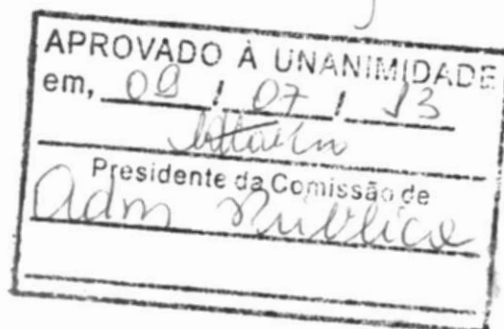 APROVADO À UNANIMIDADE
em, 09 / 07 / 13
Presidente da Comissão de
Adm Pública